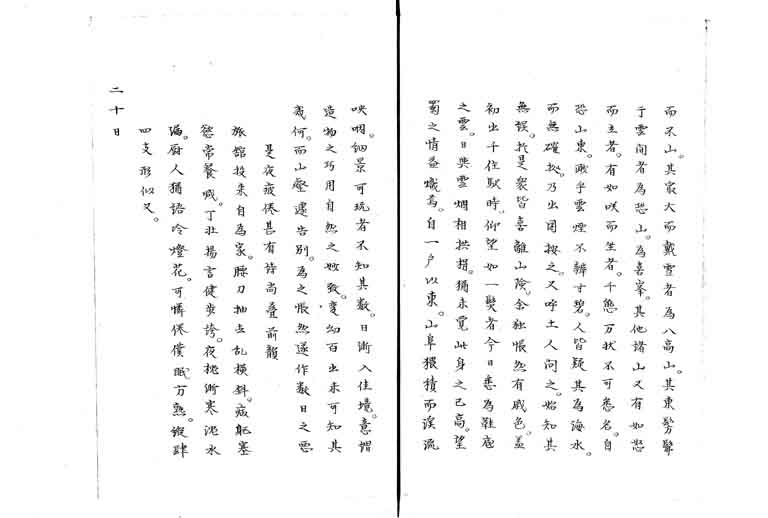 而不山。其最大而戴雪者為八高山。其東髣髴
于雲間者為恐山。為喜峯。其他諸山又有如怒
而立者。有如咲而坐者。千態万狀不可悉名。自
恐山東。眇乎雲煙不辨寸碧。人皆疑其為海水。
而無確拠。乃出図按之。又呼土人問之。始知其
無誤。於是衆皆喜離山険。余独悵然有戚色。盖
初出千住駅時。仰望如一髮者今日悉為鞋底
之雲。日與雲烟相拱揖。猶未覚此身之已高。望
蜀之情益熾焉。自一戸以東。山阜猥積而渓流
咽。細景可玩者不知其数。日漸入佳境。意謂
造物之巧用自然之妙致。変幻百出未可知其
幾何。而山壑遽告別。為之悵然遂作数日之悪
是夜疲倦甚有皆尚畳前韻
旅舘投来自為家。腰刀抽去乱横斜。疲躯塞
慾常餐喊。丁壮揚言健歩誇。夜挑漸寒泥水
漏。厨人猶語冷燈花。可憐倦僕眠方熟。縦肆
四支形似叉。
二十日